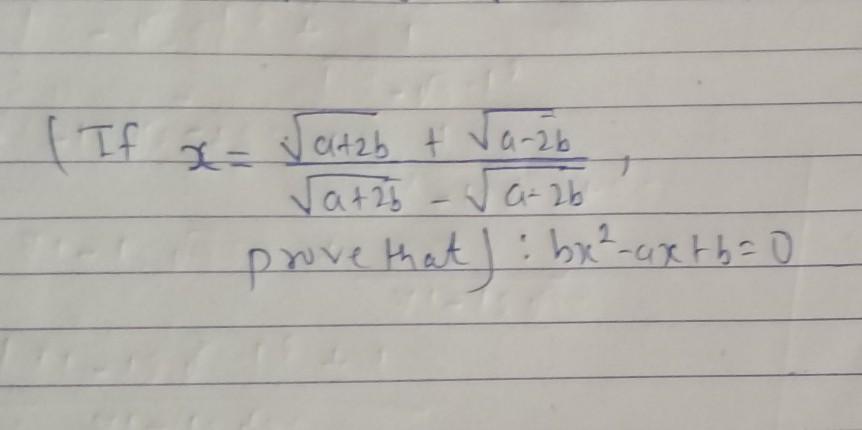 ( If x = √(a+2b) + √(a-2b) / √(a+2b) - √(a-2b) ,
prove that ) : bx² - ax + b = 0